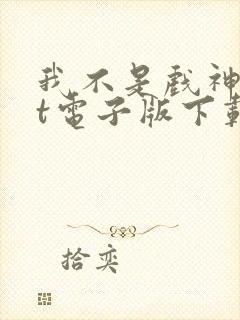 我不是戲神
t電子版下載
拾奕